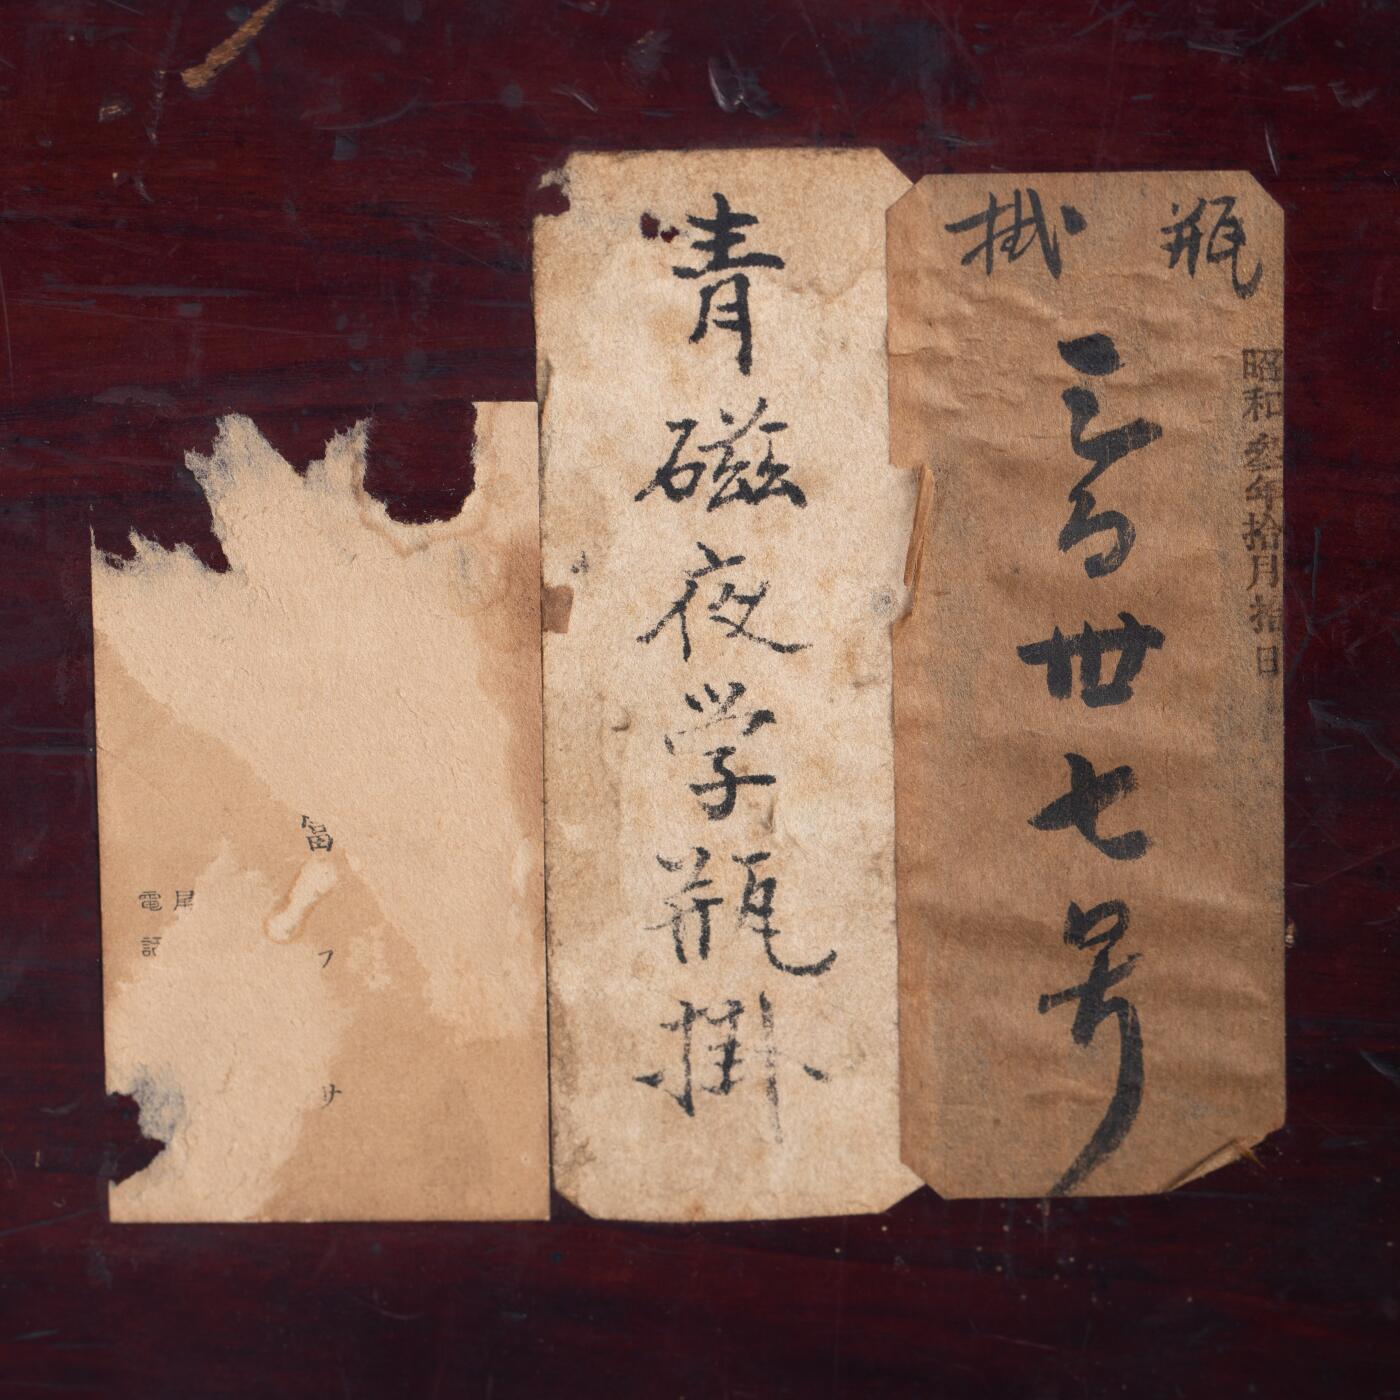 瓶掛
昭和参年拾月拾日
三百丗七号
青磁夜学瓶掛
富フサ
尾
電話